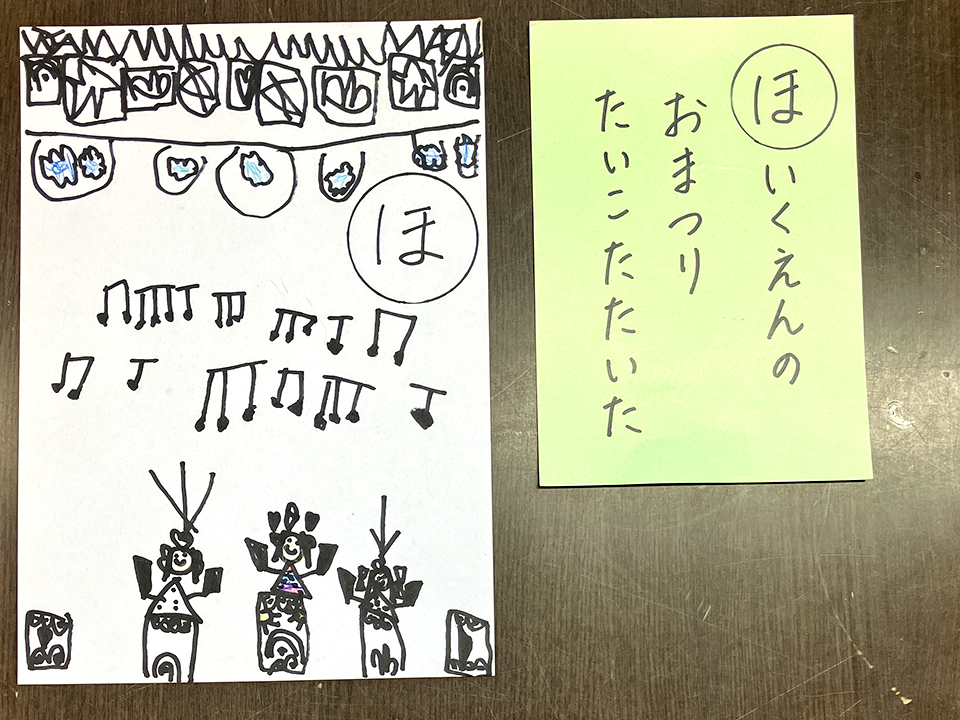 ほ
ほいくえんの
おまつり
たいこたたいた